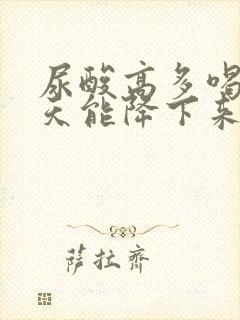 尿酸高多喝
天能降下来
萨拉齐